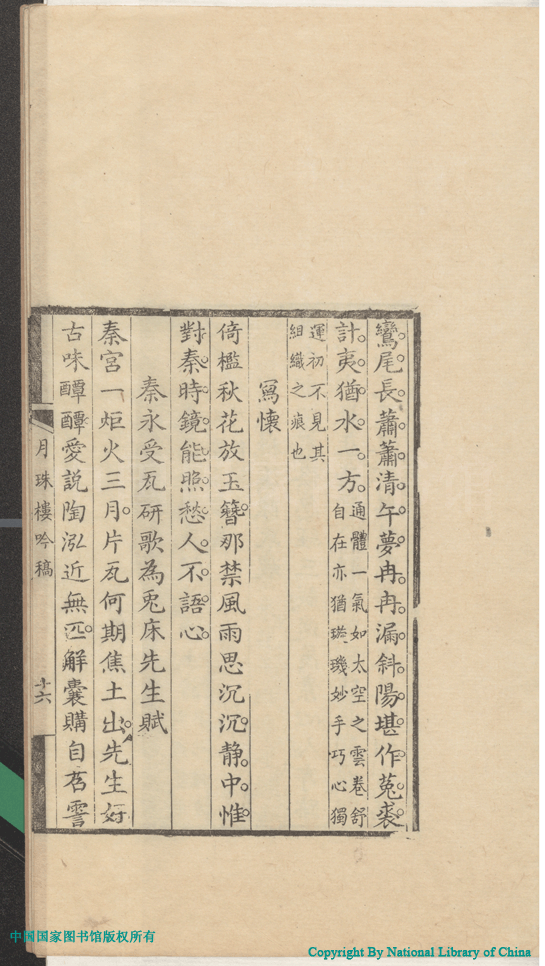 鸞尾長蕭蕭清午夢冉冉漏斜陽堪作菟裘
計夷猶水一方通體一氣如太空之雲卷舒
自在亦猶璇璣妙手巧心獨
運初不見其
組織之痕也
寫懷
倚檻秋花放玉簪那禁風雨思沉沉静中惟
對秦時鏡能照愁人不語心
秦永受瓦研歌為兎床先生賦
秦宮一炬火三月片瓦何期焦土出先生好
古味醰醰愛説陶泓近無匹解囊購自苕霅
月珠樓吟稿
十六
中国国家图书馆版权所有
Copyright By National Library of China